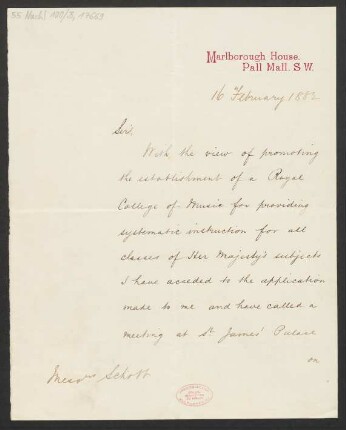 Marlborough House.
Pall Mall. S.W.
16 February 1882
Sirs,
With the view of promoting
the establishment of a Royal
College of Music for providing
systematic instruction for all
classes of Her Majesty's subjects
I have acceded to the application
made to me and have called a
meeting at St James' Palace
on
Messrs Schott